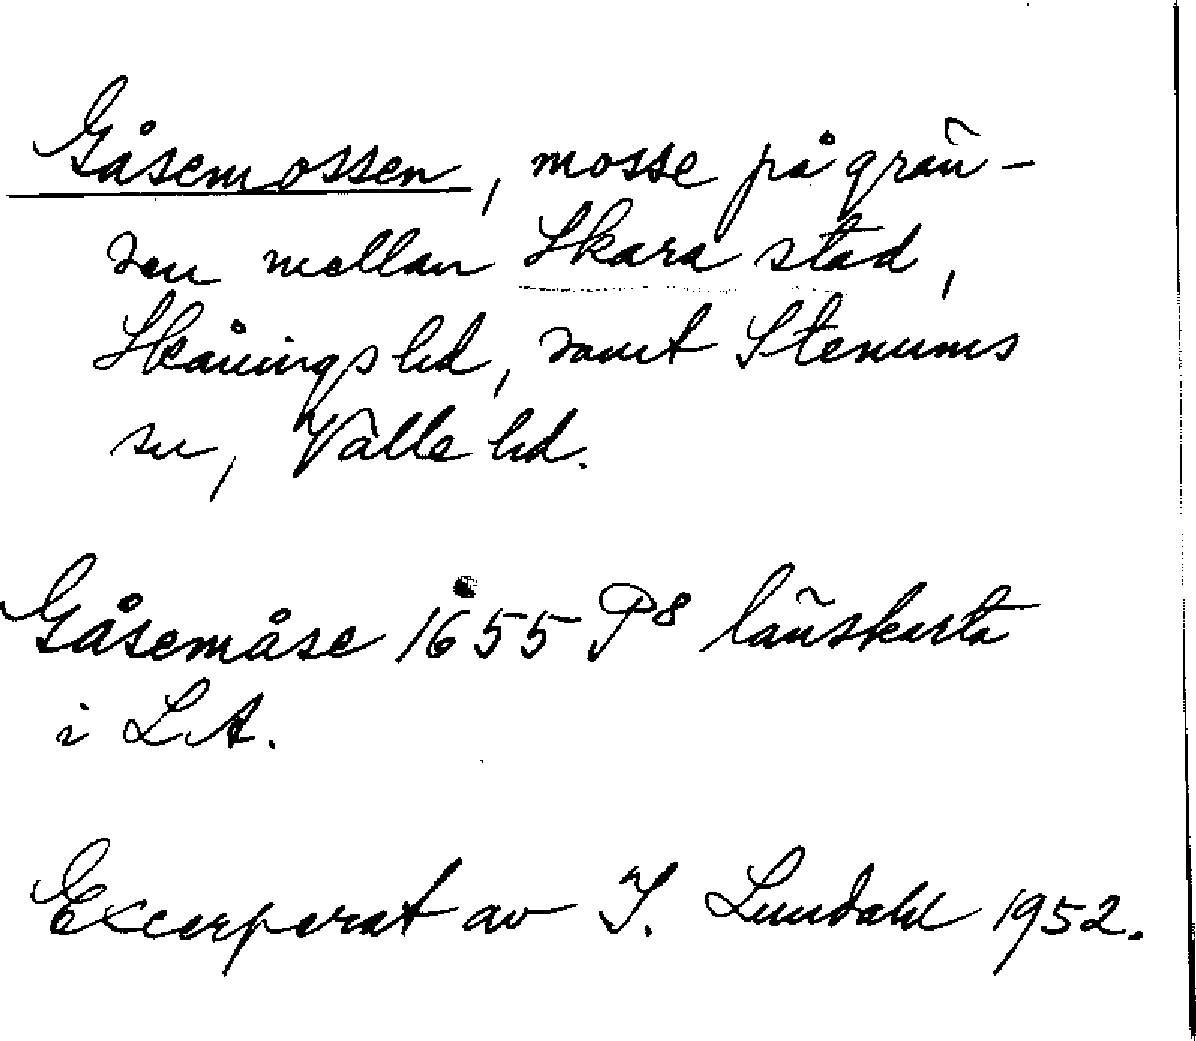 Gåsemossen, mosse på grän-
sen mellan Skara stad,
Skånings hd, samt Stenums
sn, Valle hd.
Gåsemåse 1655 P8 länskarta
i LA.
Excerperat av I. Lundahl 1952.